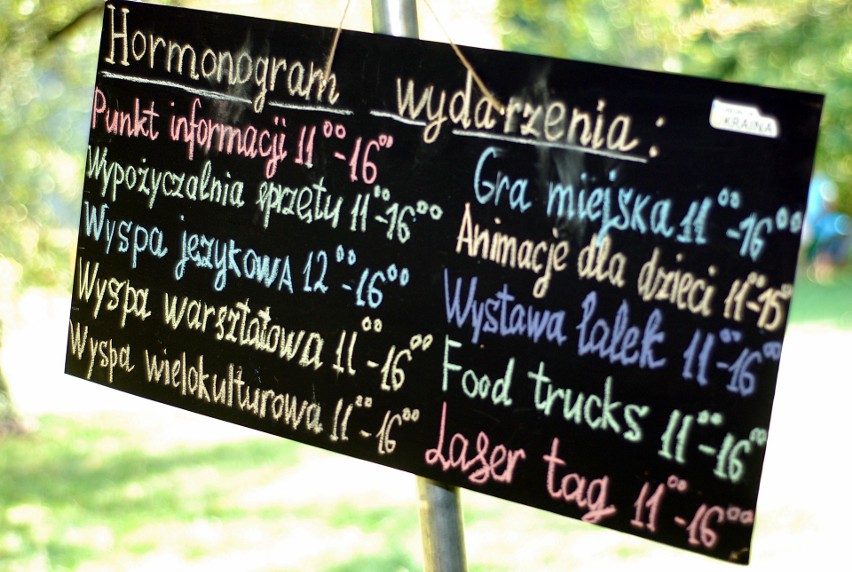 Hormonogram wydarzenia:
Punkt informacji 11⁰⁰-16⁰⁰
Wypożyczalnia sprzętu 11⁰⁰-16⁰⁰
Wyspa językowa 12⁰⁰-16⁰⁰
Wyspa warsztatowa 11⁰⁰-16⁰⁰
Wyspa wielokulturowa 11⁰⁰-16⁰⁰
KRAINA
Gra miejska 11⁰⁰-16⁰⁰
Animacje dla dzieci 11⁰⁰-15⁰⁰
Wystawa lalek 11⁰⁰-16⁰⁰
Food trucks 11⁰⁰-16⁰⁰
Laser tag 11⁰⁰-16⁰⁰